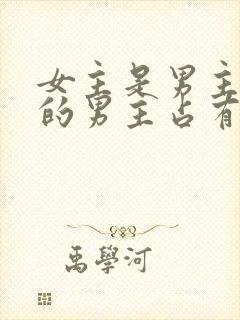 女主是男主
的男主占有
禹學河